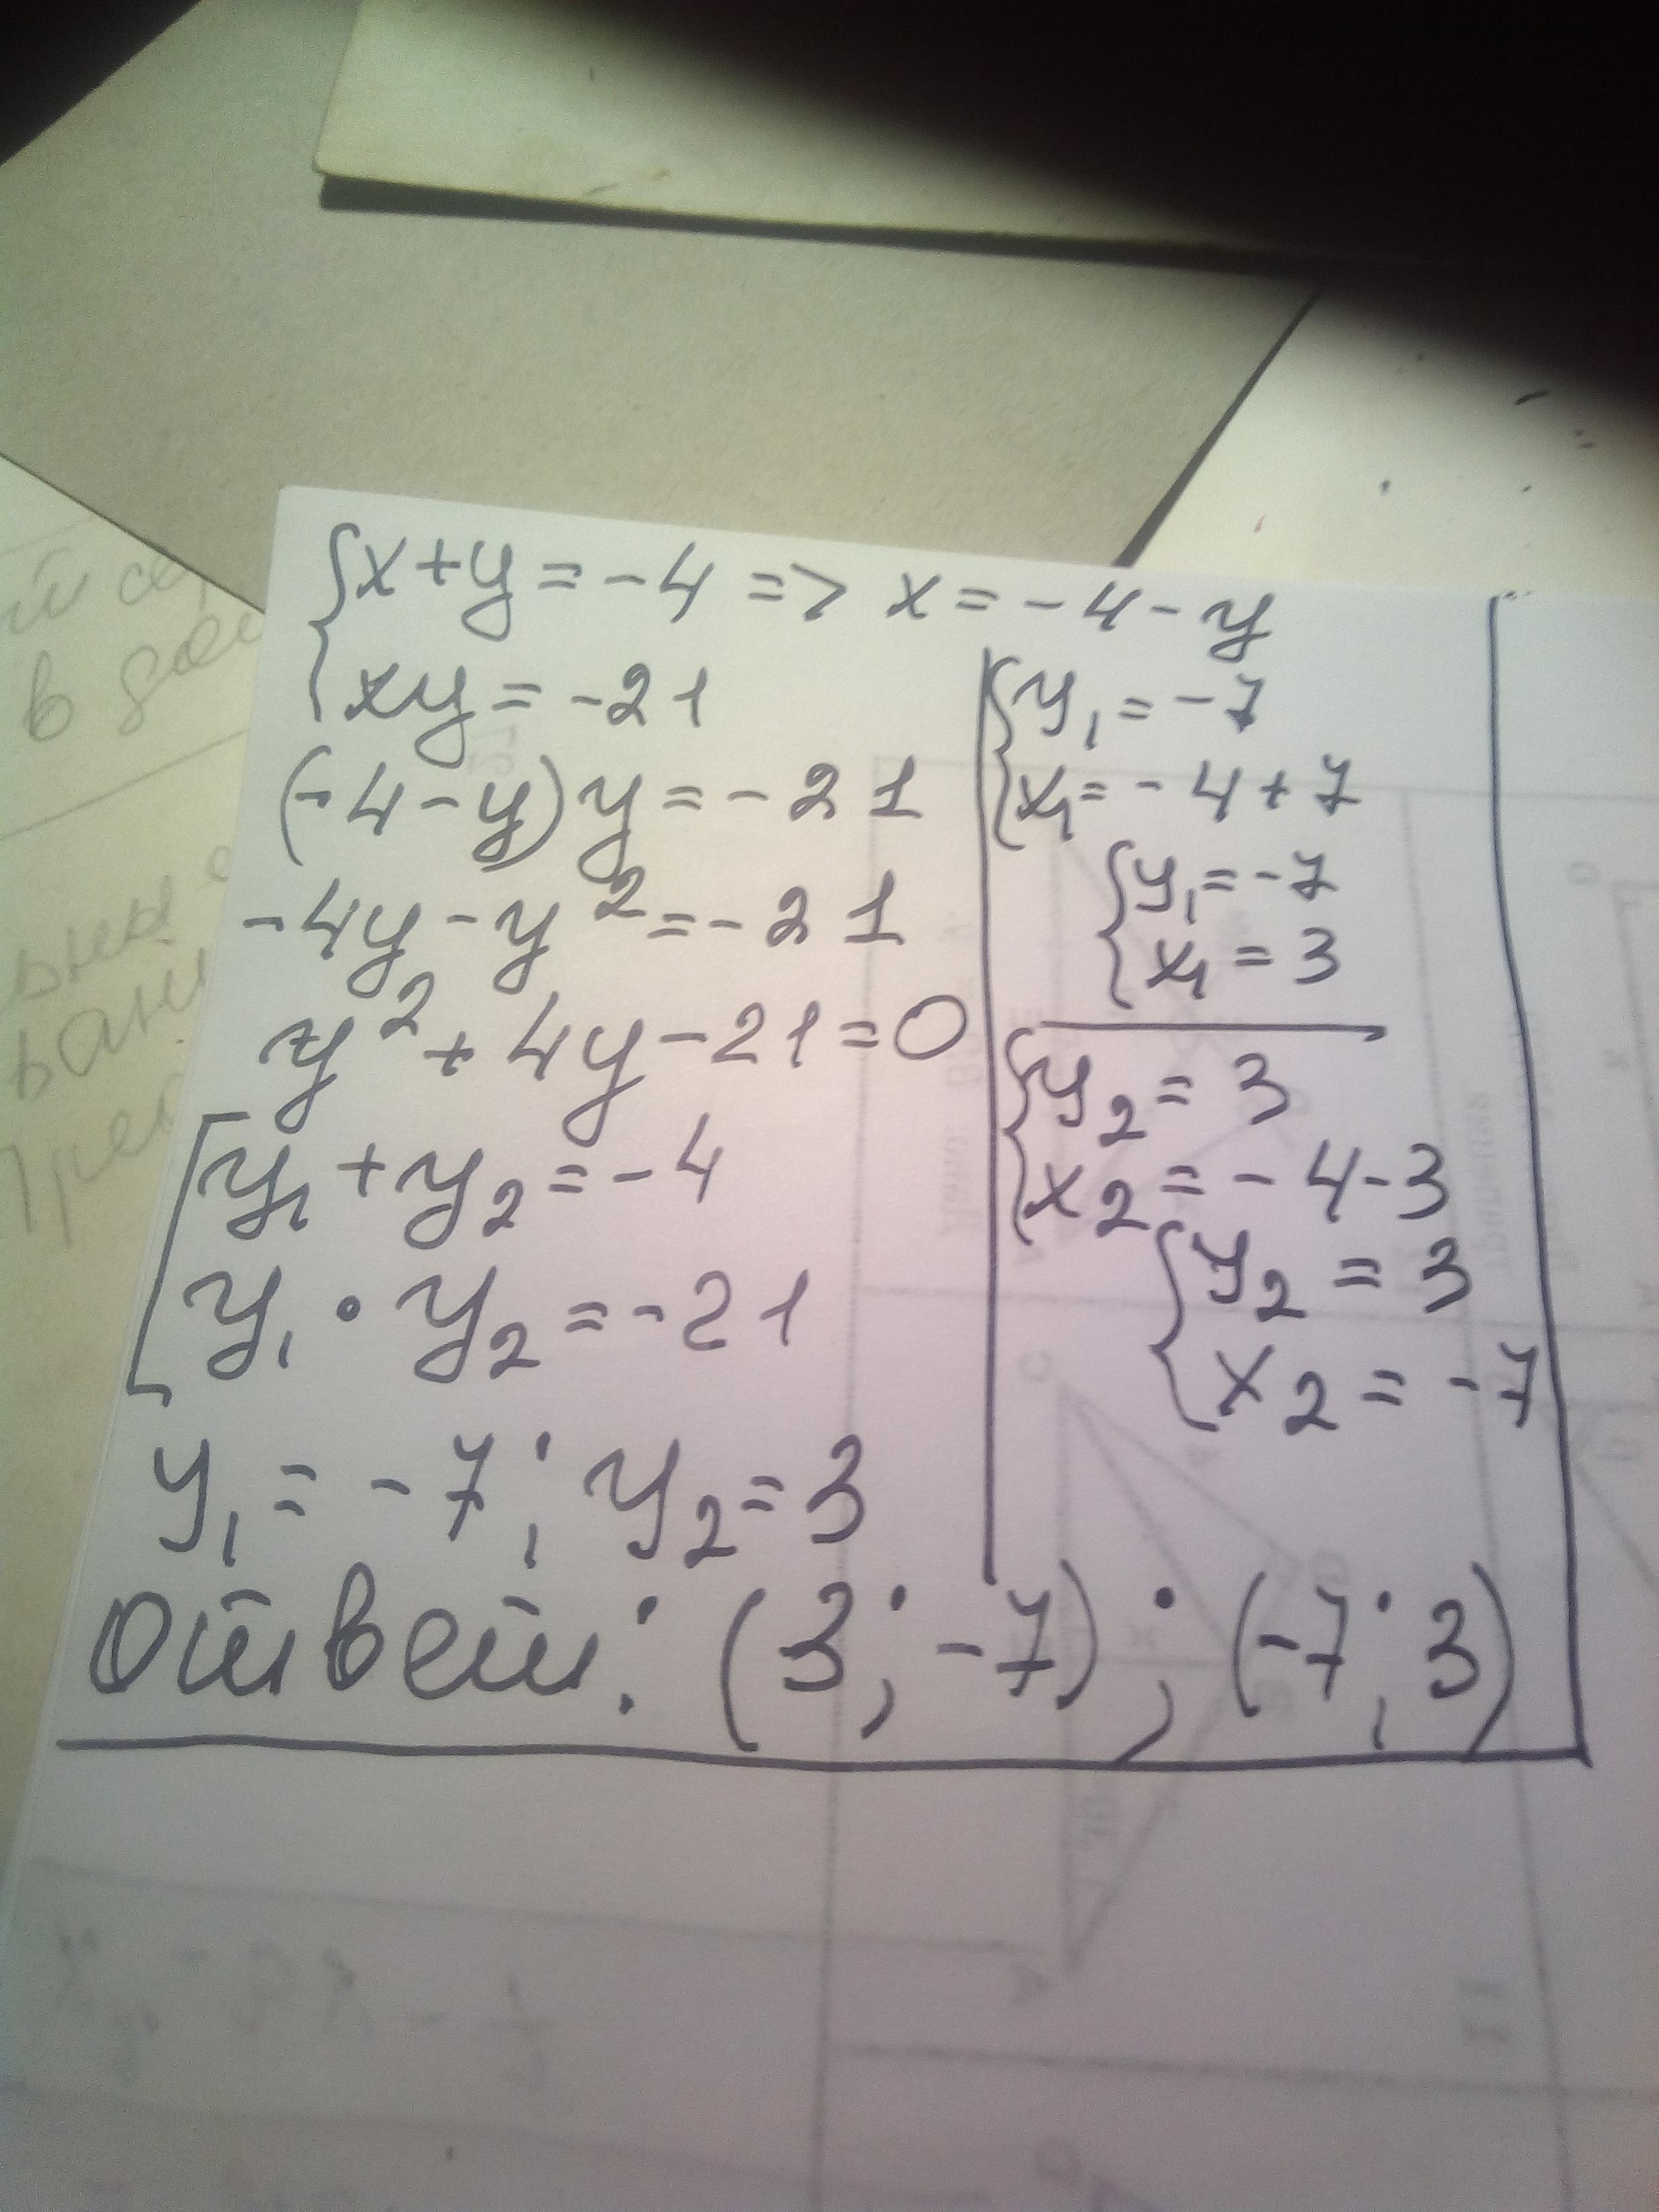 {x+y=-4 => x=-4-y
xy=-21
(-4-y)y=-21
-4y-y²=-21
y²+4y-21=0
[y₁+y₂=-4
y₁·y₂=-21
y₁=-7; y₂=3
{y₁=-7
x₁=-4+7
{y₁=-7
x₁=3
{y₂=3
x₂=-4-3
{y₂=3
x₂=-7
Ответ: (3;-7); (-7;3)